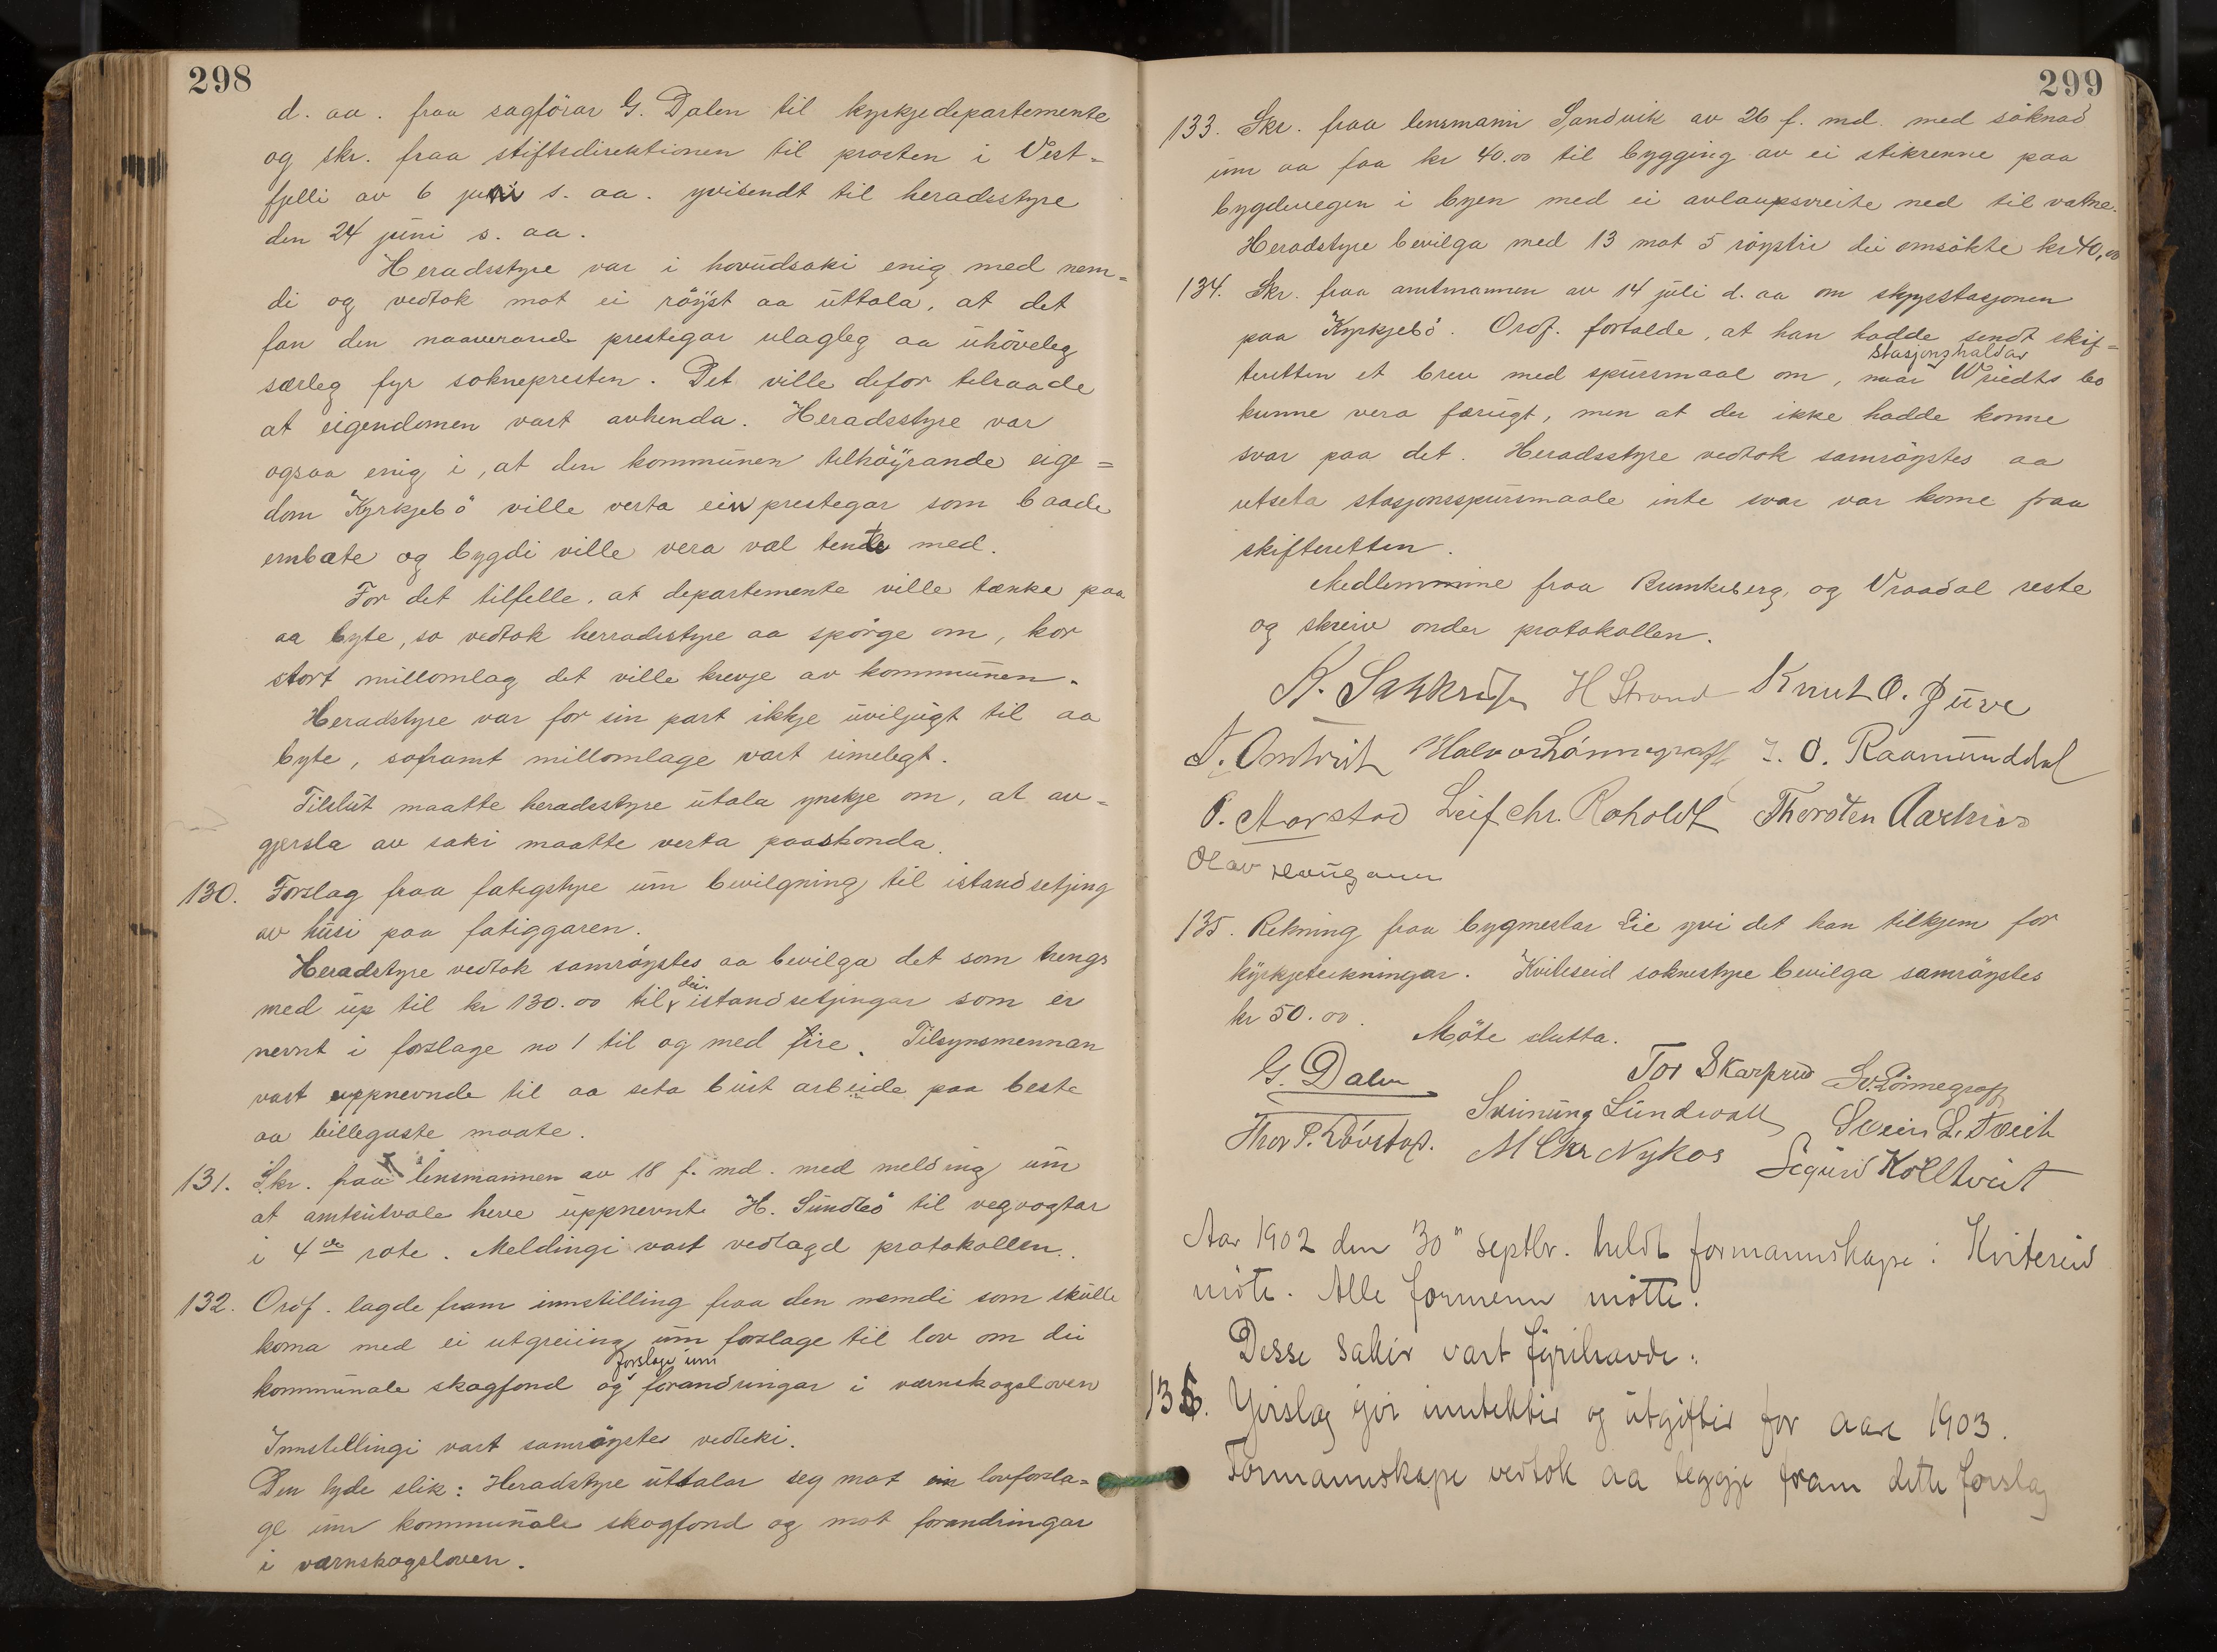 298
d. aa. fraa sagförar G. Dalen til kyrkjedepartemente
og skr. fraa stiftsdirektionen til prosten i Vest-
fjelli av 6 juni s. aa. yvisendt til heradsstyre
den 24 juni s. aa.
Heradsstyre var i hovudsaki enig med nem=
di og vedtok mot ei röyst aa uttala, at det
fan den naaverande prestegar ulagleg aa uhöveleg
særleg fyr soknepresten. Det ville defor tilraade
at eigendomen vart avhenda. Heradsstyre var
ogsaa enig i, at den kommunen tilhöyrande eige=
dom "Kyrkjebö" ville verta ein prestegar som baade
embæte og bygdi ville vera val tente med.
For det tilfelle, at departemente ville tænke paa
aa byte, so vedtok herradsstyre aa spörge om, kor
stort millomlag det ville krevje av kommunen.
Heradstyre var for sin part ikkje uviljugt til aa
byte, soframt millomlage vart rimelegt.
Tilslut maatte heradsstyre utala ynskje om, at av-
gjersla av saki maatte verta paaskonda.
130. Forslag fraa fatigstyre um bevilgning til istandsetjing
av husi paa fatiggaren.
Heradstyre vedtok samröystes aa bevilga det som trengs
med up til kr 130.00 til dei istandsetjingar som er
nevnt i forslage no 1 til og med fire. Tilsynsmennan
vart uppnevnde til aa seta burt arbeide paa beste
aa billegaste maate.
131. Skr. fraa lensmannen av 18 f. md. med melding um
at amtsutvale heve uppnevnt H. Sundbö til vegvogtar
i 4de rote. Meldingi vart vedlagd protokollen.
132. Ordf. lagde fram innstilling fraa den nemdi som skulle
koma med ei utgreiing um forslage til lov om dei
kommunale skogfond og forslage um forandringar i værnskogsloven
Innstillingi vart samröystes vedteki.
Den lyde slik: Heradstyre uttalar seg mot ein lovforsla=
ge um kommunale skogfond og mot forandringar
i værnskogsloven.
299
133. Skr. fraa lensmann Sandvik av 26 f. md. med söknad
um aa faa kr 40.00 til bygging av ei stikrenne paa
bygdevegen i byen med ei avlaupsveite ned til vatne.
Heradstyre bevilga med 13 mot 5 röystir dei omsökte kr 40,00
134. Skr. fraa amtmannen av 14 juli d. aa om skysstasjonen
paa "Kyrkjebö". Ordf. fortalde, at han hadde sendt skif=
teretten et brev med spursmaal om, naar stasjonshaldar Wriedts bo
kunne vera færugt, men at der ikke hadde kome
svar paa det. Heradsstyre vedtok samröystes aa
utseta stasjonsspursmaale inte svar var kome fraa
skifteretten.
Medlemmine fraa Brunkeberg og Vraadal reste
og skreiv onder protokollen.
H Strand Knut O. Juve
Halvor Lönnegraff O. Raamunddal
O. Aarstad Leif Chr. Roholdt Thorsten Aarhus
Olav Haugann
135. Rekning fraa bygmestar Lie yvi det han tilkjem for
kyrkjeteikningar. Kviteseid soknestyre bevilga samröystes
kr 50.00.
Möte slutta.
G. Dalen Tor Skarprud Sv. Lönnegraff
Sveinung Lundevall Svein L. Tveit
Thor P. M Chr Nykos Sigurd Kolltveit
Aar 1902 den 30" septbr. heldt formannskape i Kviteseid
möte. Alle formenn mötte.
Desse sakir vart fyrihavde:
136. Yvislag yvi inntektir og utgiftir for aare 1903.
Formannskape vedtok aa leggje fram dette forslag